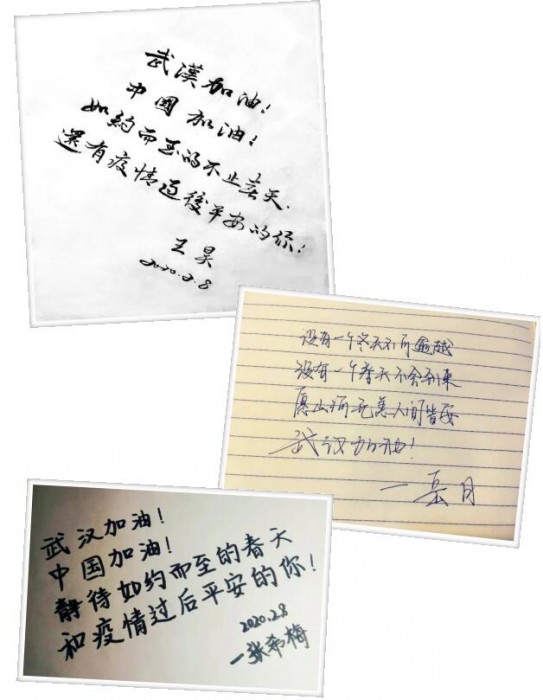 武漢加油！
中國加油！
如約而至的不止春天．
還有疫情過後平安的你！
王昊
2020.2.8
没有一个冬天不可逾越
没有一个春天不会到来
愿山河无恙人间皆安
武汉加油！
一岳月
武汉加油！
中国加油！
静待如约而至的春天
和疫情过后平安的你！
2020.2.8
一张希梅